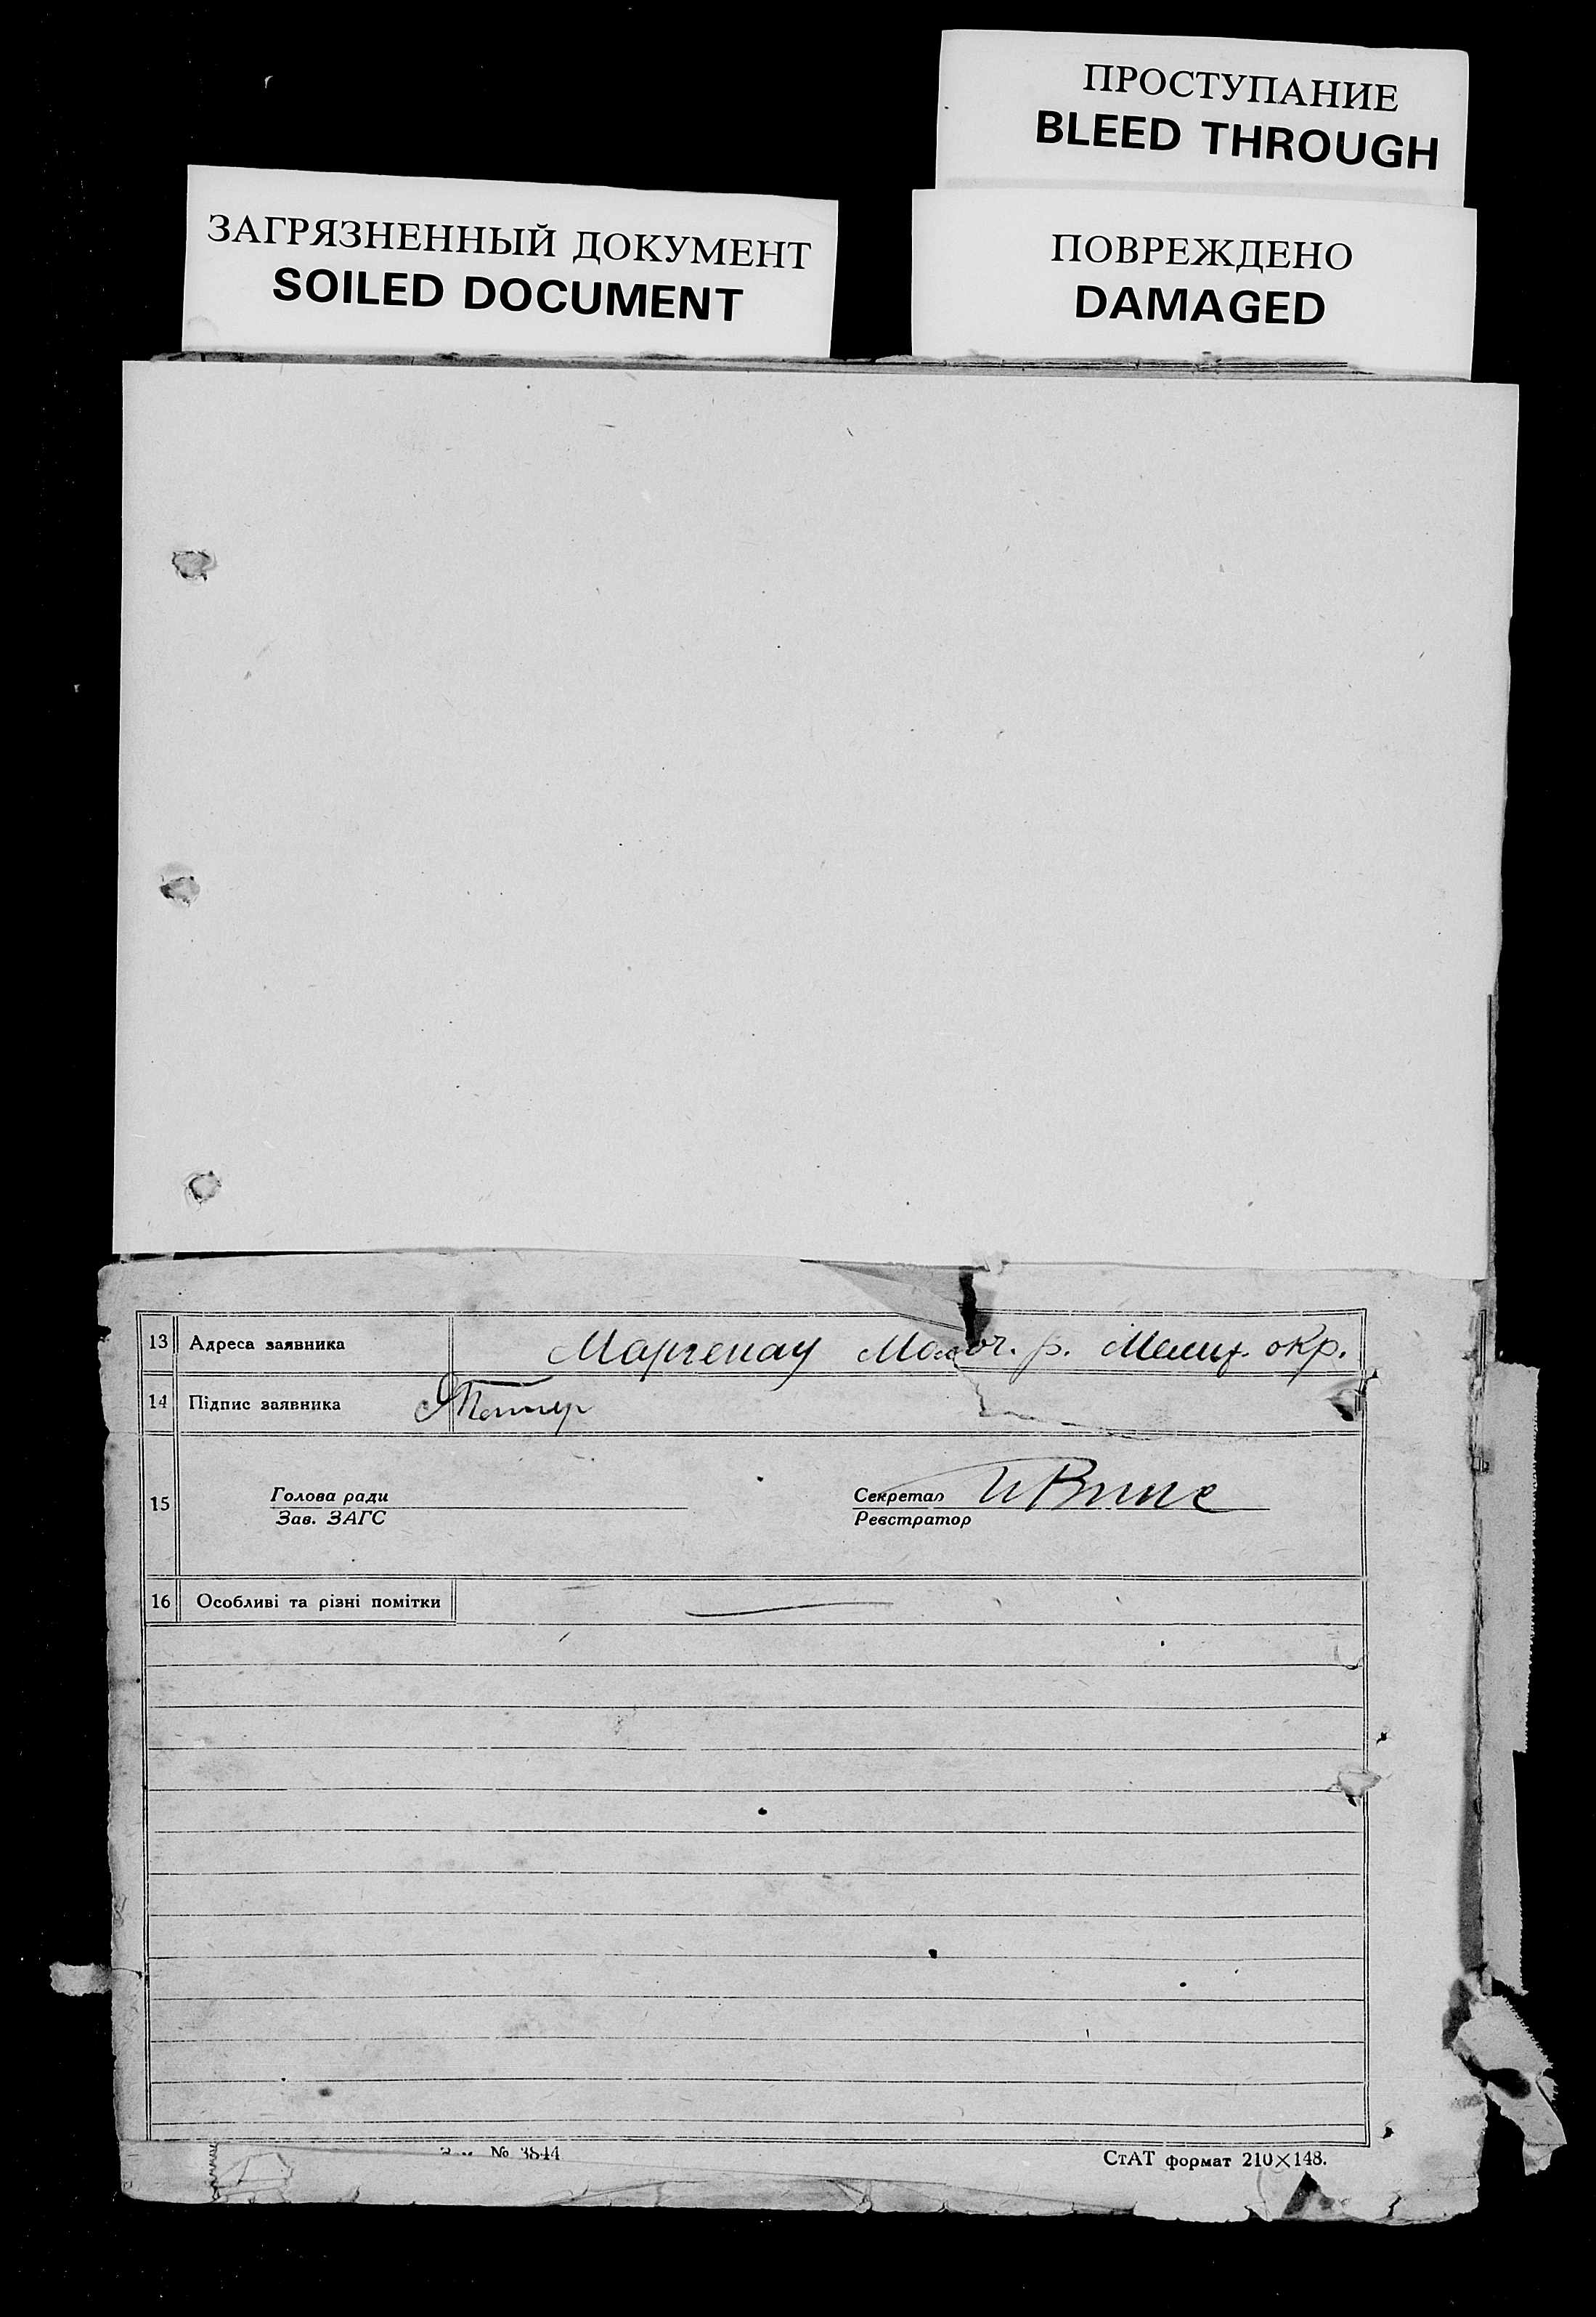 ПРОСТУПАНИЕ
BLEED THROUGH
ЗАГРЯЗНЕННЫЙ ДОКУМЕНТ
SOILED DOCUMENT
ПОВРЕЖДЕНО
DAMAGED
13 Адреса заявника Маргенау Молоч. р. Мелит. окр.
14 Підпис заявника
15 Голова ради Секретар
Зав. ЗАГС Реєстратор
16 Особливі та різні помітки
№ 3844 СтАТ формат 210×148.